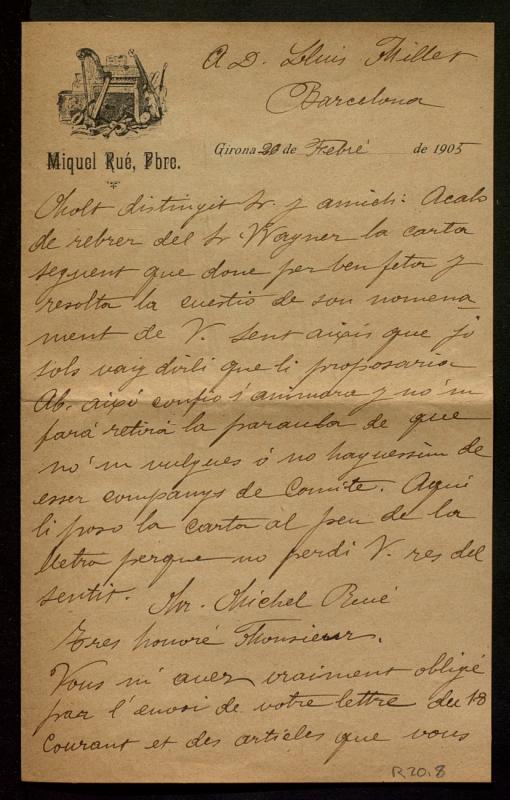 A D. Lluis Millet
Barcelona
Miquel Rué, Pbre.
Girona 20 de Febré de 1905
Molt distingit Sr. y amich: Acabo
de rebrer del Sr. Wagner la carta
seguent que done per ben feta y
resolta la cuestió de son nomena-
ment de V. sent aixís que jo
sols vaig dirli que li proposaria
Ab aixó confio s'animara y no'm
fará retirá la paraula de que
no'm vulgues ó no haguessim de
esser companys de Comite. Aquí
li poso la carta al peu de la
lletra perque no perdi V. res del
sentit.
Mr. Michel Rué
Tres honoré Monsieur.
Vous m'avez vraiment obligé
par l'envoi de votre lettre du 18
Courant et des articles que vous
R 20.8